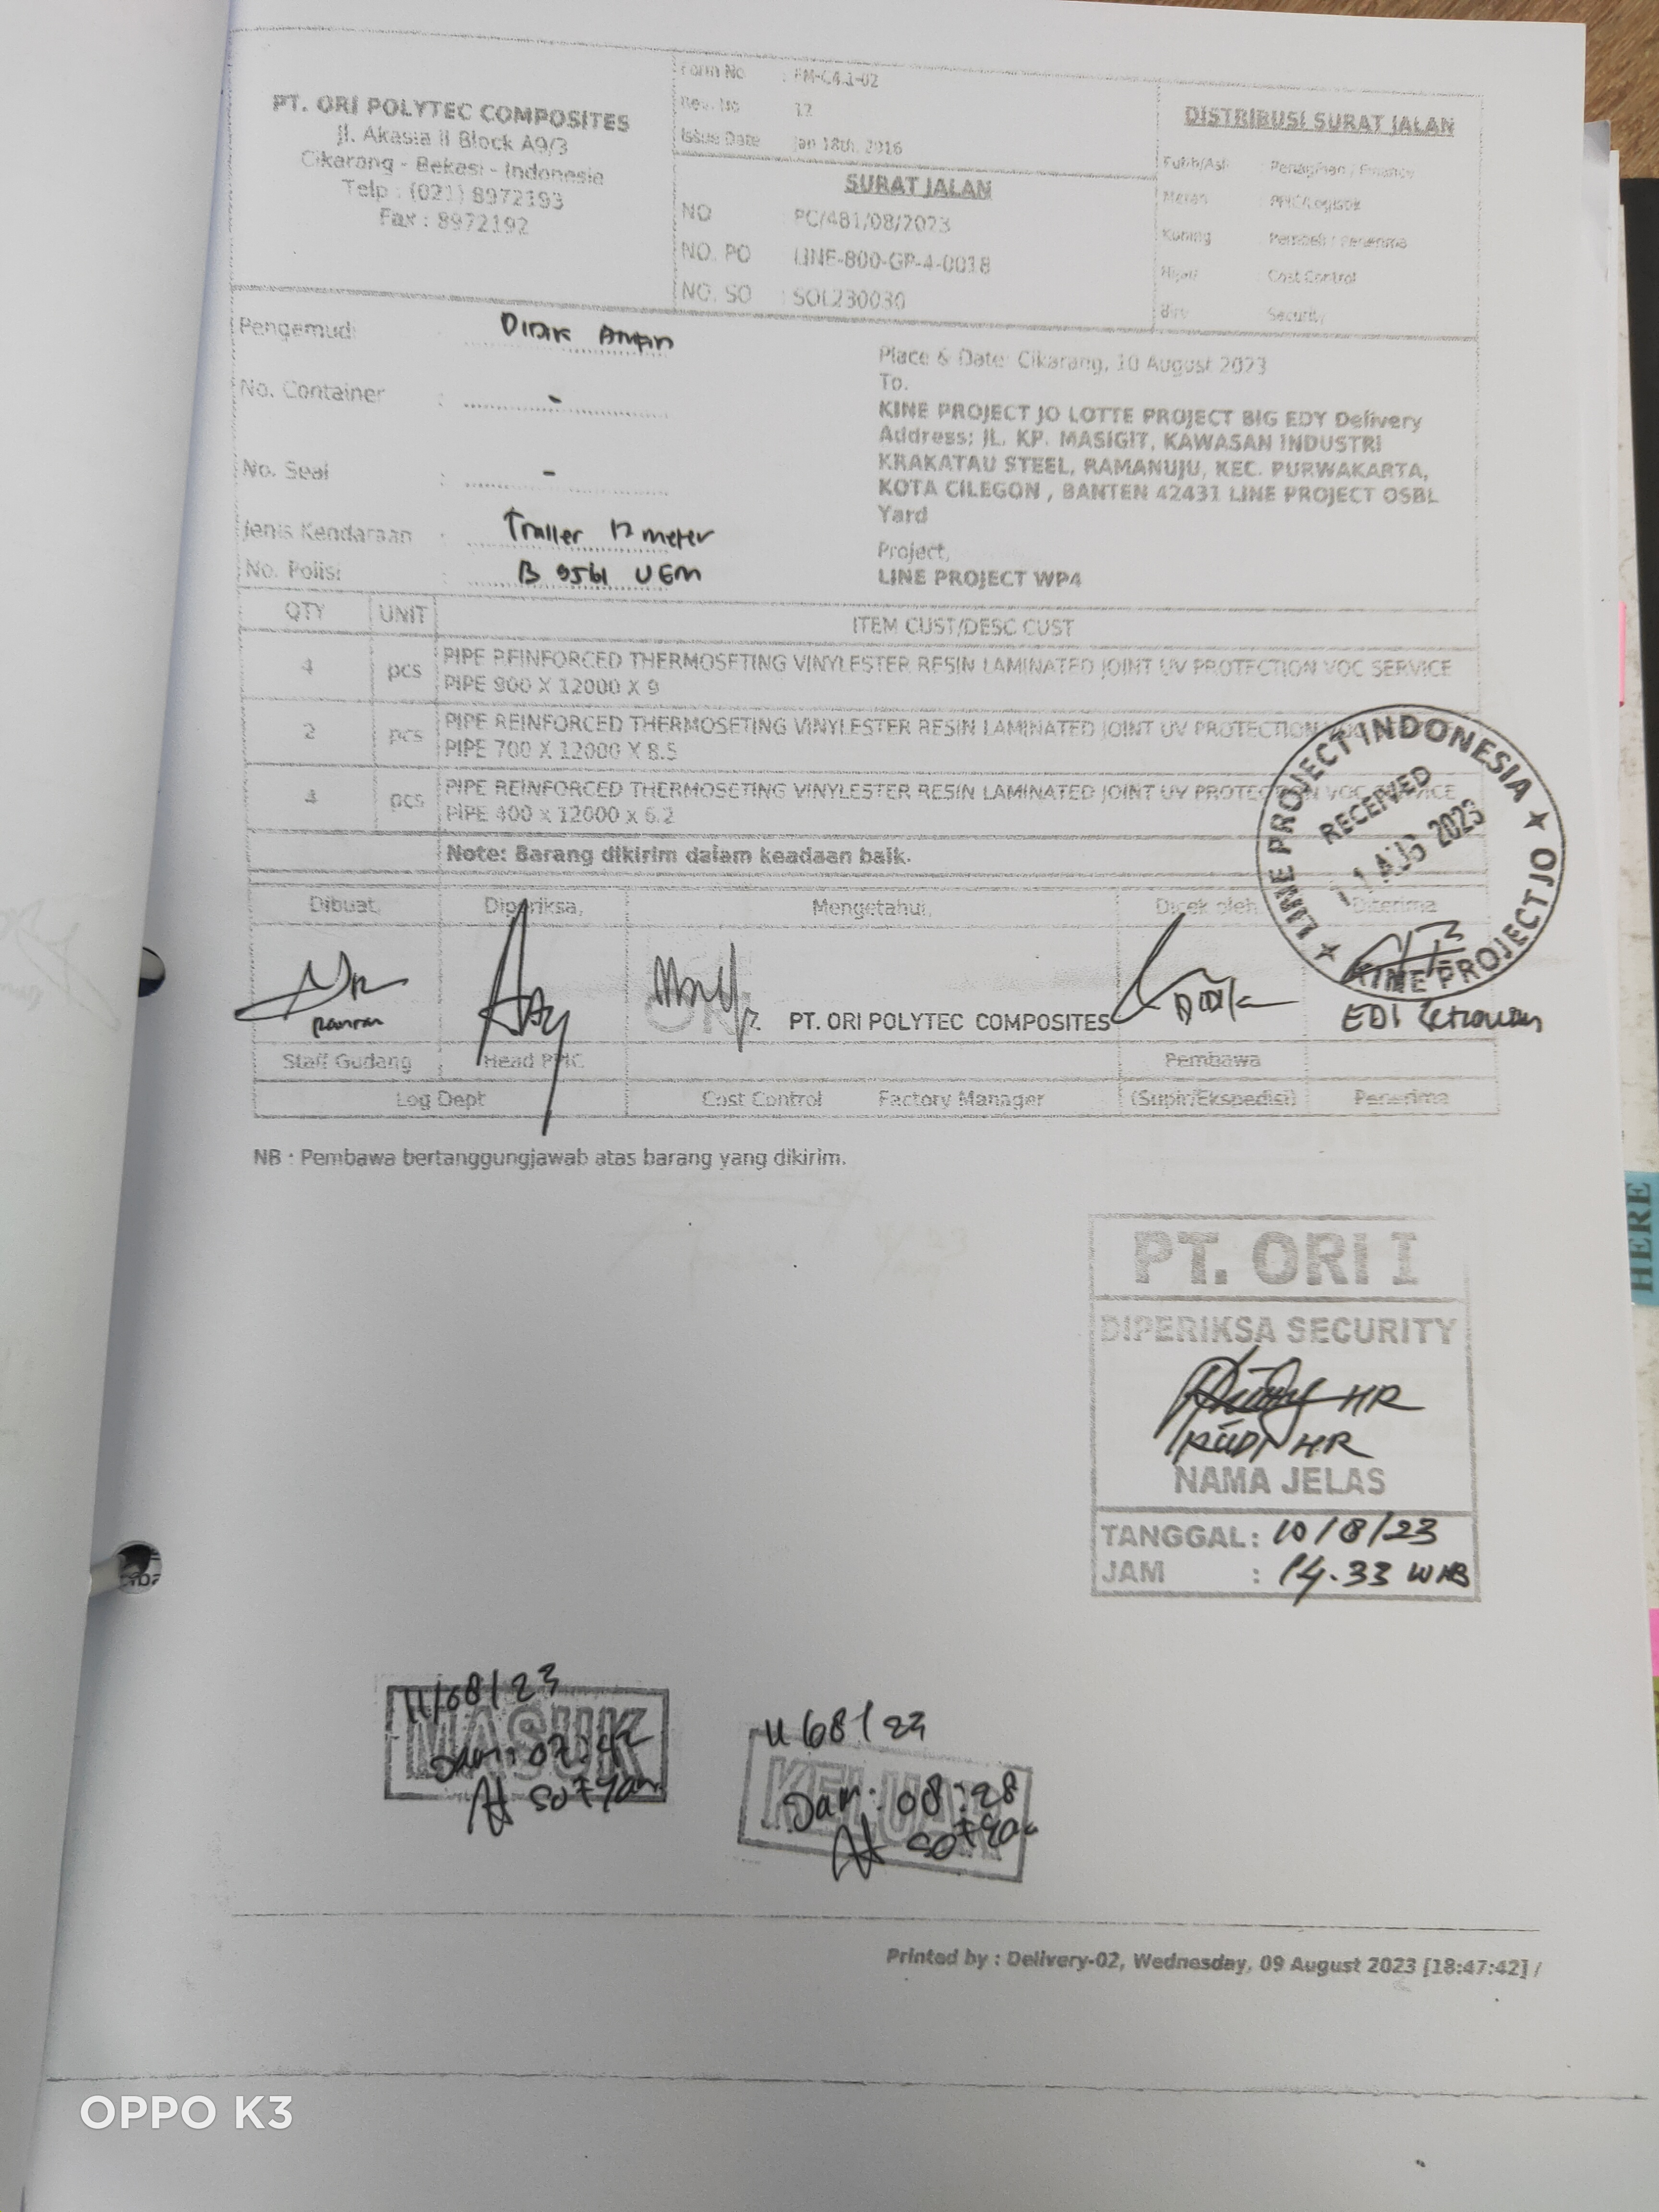 PT. ORI POLYTEC COMPOSITES
Jl. Akasia II Block A9/3
Cikarang - Bekasi - Indonesia
Telp : (021) 8972193
Fax : 8972192
Form No : FM-C4.1-02
Rev. No 12
Issue Date Jan 18th, 2016
SURAT JALAN
NO PC/481/08/2023
NO. PO LINE-800-GP-4-0018
NO. SO : SOL230030
DISTRIBUSI SURAT JALAN
Putih/Asli : Penagihan / Finance
Merah : PPIC/Logistik
Kuning : Pembeli / Penerima
Hijau : Cost Control
Biru : Security
Pengemudi
No. Container : -
No. Seal : -
Jenis Kendaraan : Trailer 12 meter
No. Polisi : B 9561 UEM
Place & Date: Cikarang, 10 August 2023
To.
KINE PROJECT JO LOTTE PROJECT BIG EDY Delivery
Address: JL. KP. MASIGIT, KAWASAN INDUSTRI
KRAKATAU STEEL, RAMANUJU, KEC. PURWAKARTA,
KOTA CILEGON , BANTEN 42431 LINE PROJECT OSBL
Yard
Project,
LINE PROJECT WP4
QTY UNIT ITEM CUST/DESC CUST
4 pcs PIPE REINFORCED THERMOSETING VINYLESTER RESIN LAMINATED JOINT UV PROTECTION VOC SERVICE
PIPE 900 X 12000 X 9
2 pcs PIPE REINFORCED THERMOSETING VINYLESTER RESIN LAMINATED JOINT UV PROTECTION VOC
PIPE 700 X 12000 X 8.5
4 pcs PIPE REINFORCED THERMOSETING VINYLESTER RESIN LAMINATED JOINT UV PROTECTION VOC SERVICE
PIPE 400 x 12000 x 6.2
Note: Barang dikirim dalam keadaan baik.
LINE PROJECT INDONESIA
RECEIVED
11 AUG 2023
KINE PROJECT JO
Dibuat, Diperiksa, Mengetahui, Dicek oleh Diterima
PT. ORI POLYTEC COMPOSITES
EDI
Staff Gudang Head PPIC Pembawa
Log Dept Cost Control Factory Manager (Supir/Ekspedisi) Penerima
NB : Pembawa bertanggungjawab atas barang yang dikirim.
PT. ORI I
DIPERIKSA SECURITY
RUDI HR
NAMA JELAS
TANGGAL : 10/8/23
JAM : 14.33 WIB
11/08/23
MASUK
Jam: 07:42
Sofyan
11/08/23
KELUAR
Jam: 08:28
Sofyan
Printed by : Delivery-02, Wednesday, 09 August 2023 [18:47:42] /
HERE
OPPO K3